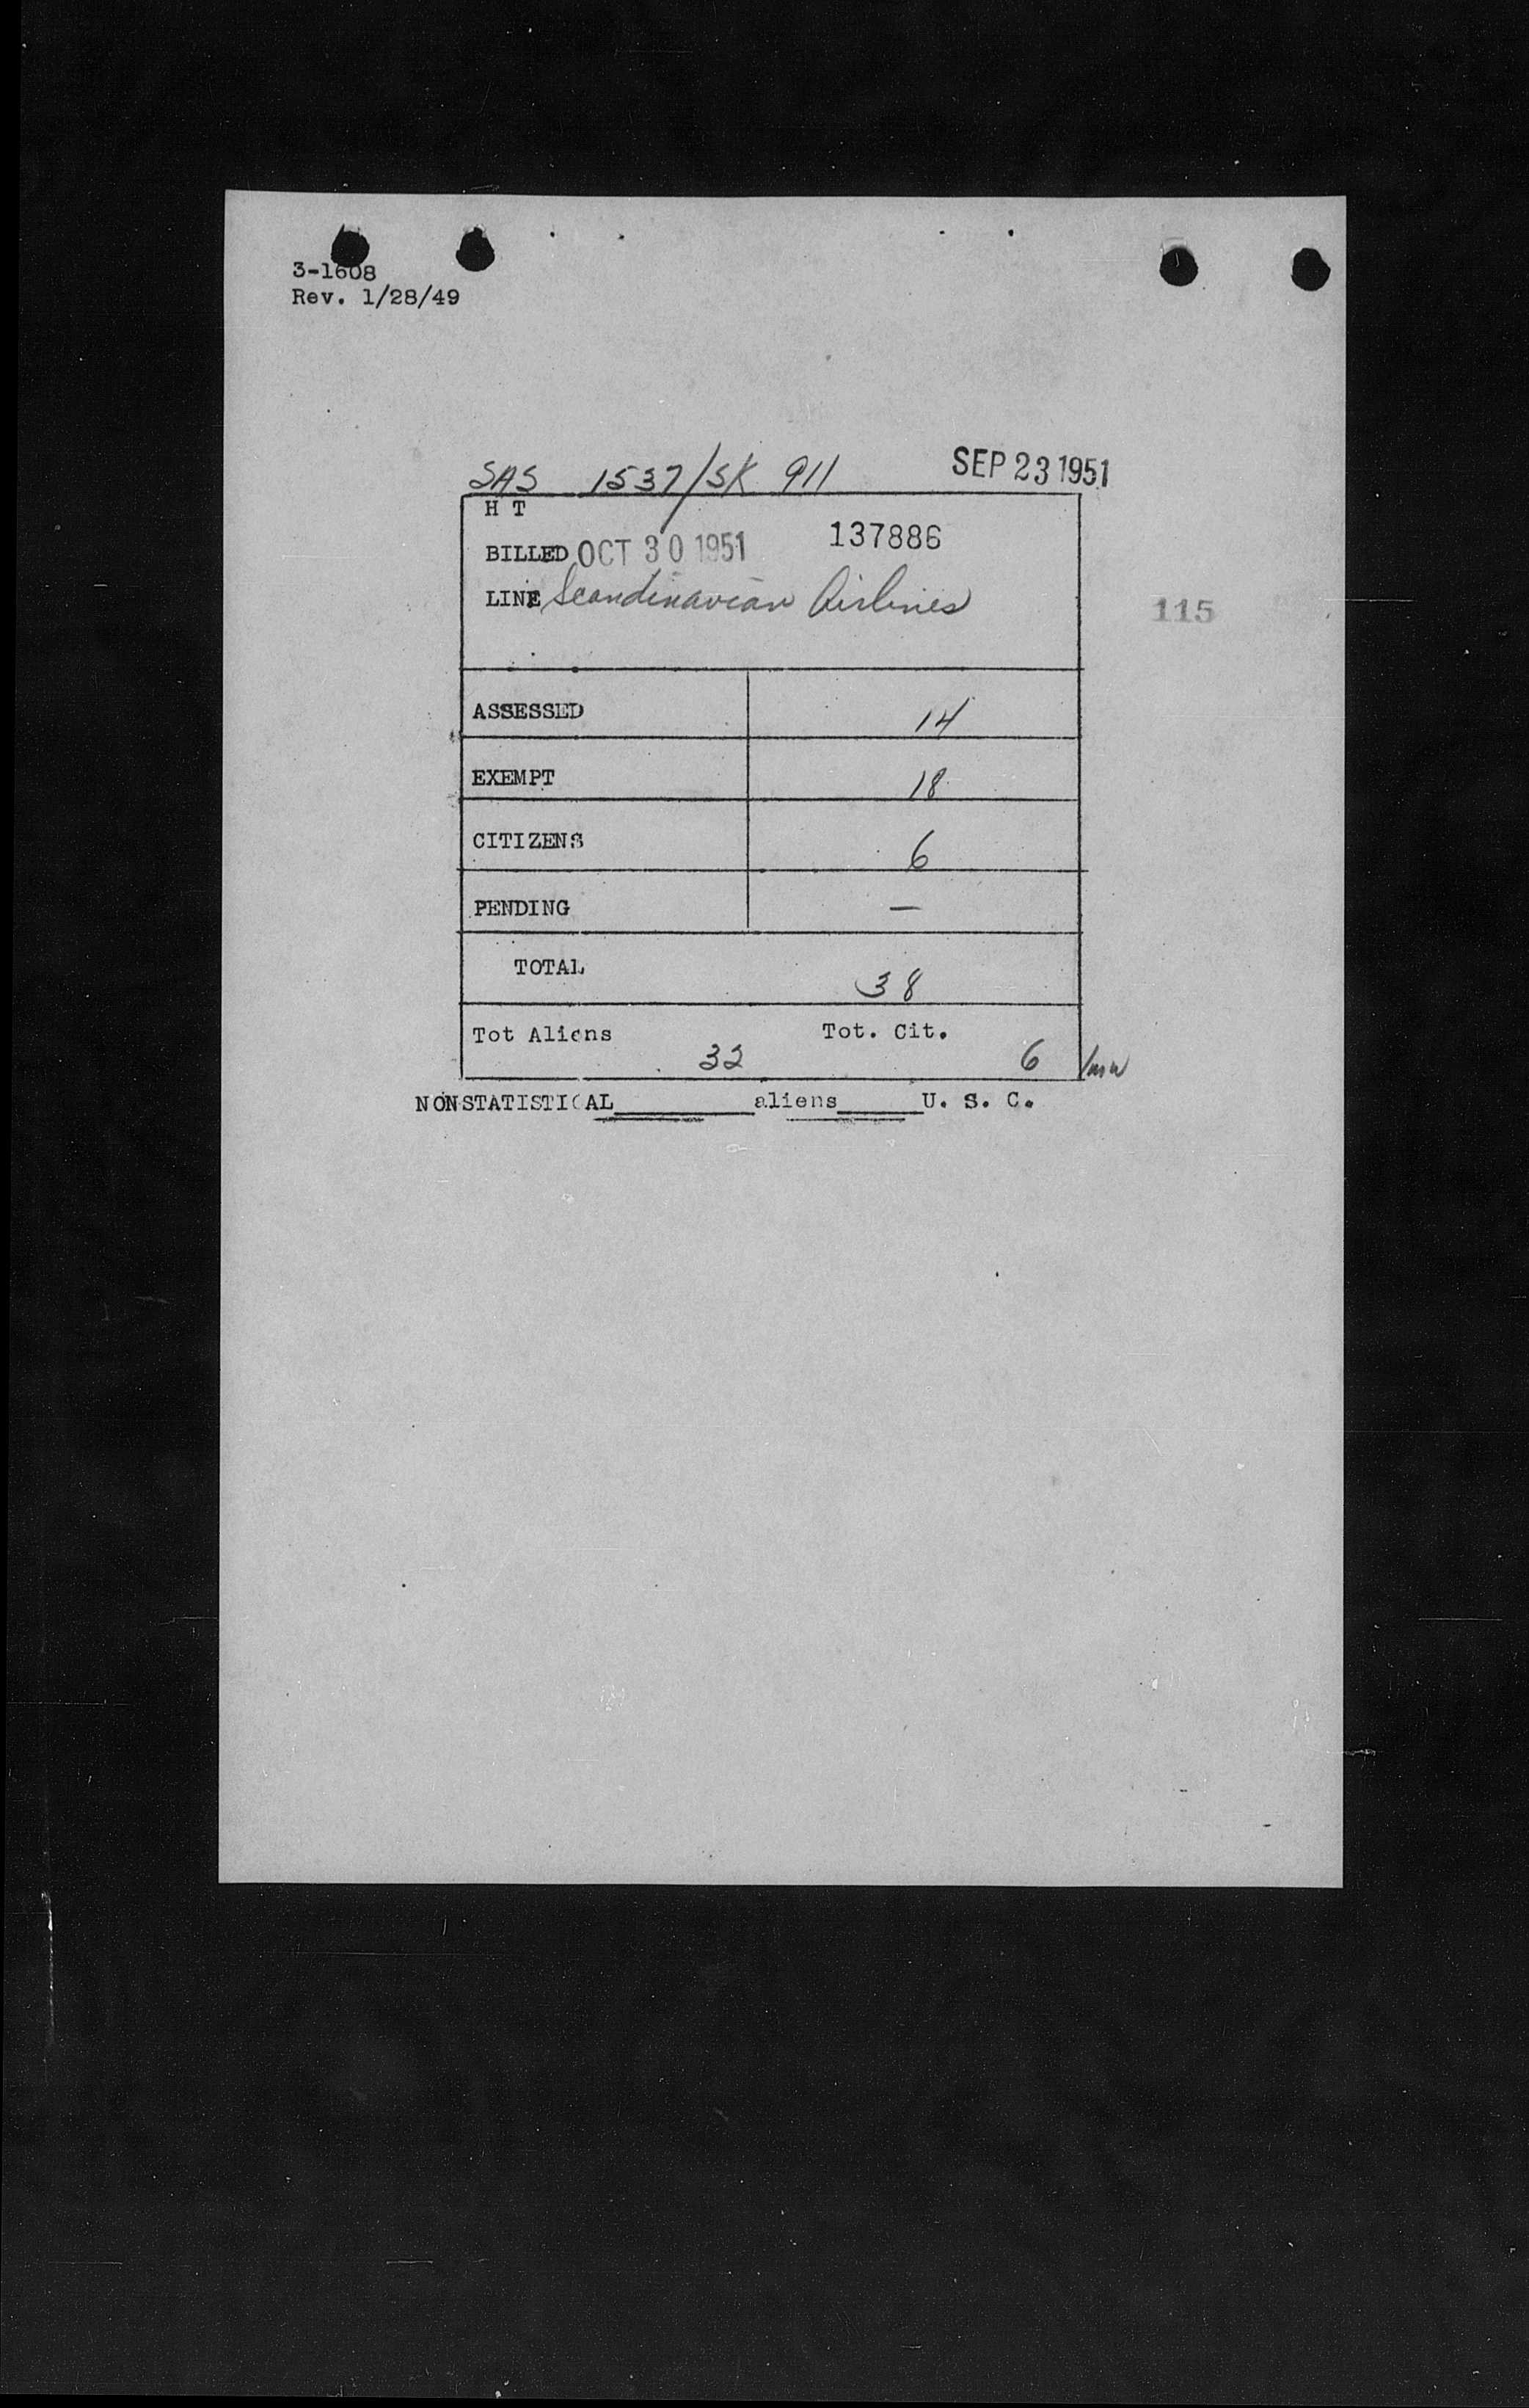 3-1608
Rev. 1/28/49
SAS 1537/SK 911 SEP 23 1951
H T
BILLED OCT 30 1951 137886
LINE Scandinavian Airlines
115
ASSESSED 14
EXEMPT 18
CITIZENS 6
PENDING —
TOTAL 38
Tot Aliens Tot. Cit.
32 6
NONSTATISTICAL__________aliens______U. S. C.